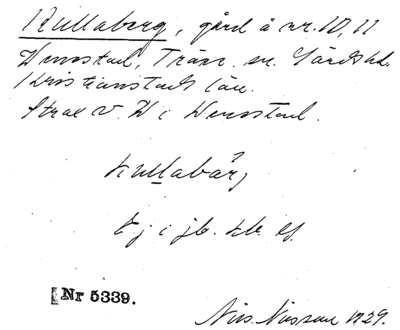 Kullaberg, gård å nr. 10, 11
Wennestad, Träne sn. Gärds hd.
Kristianstads län.
Strax v. W i Wennestad.
kullabärj
Ej i jb. kb. el.
[Nr 5339.
Nils Nilsson 1929.